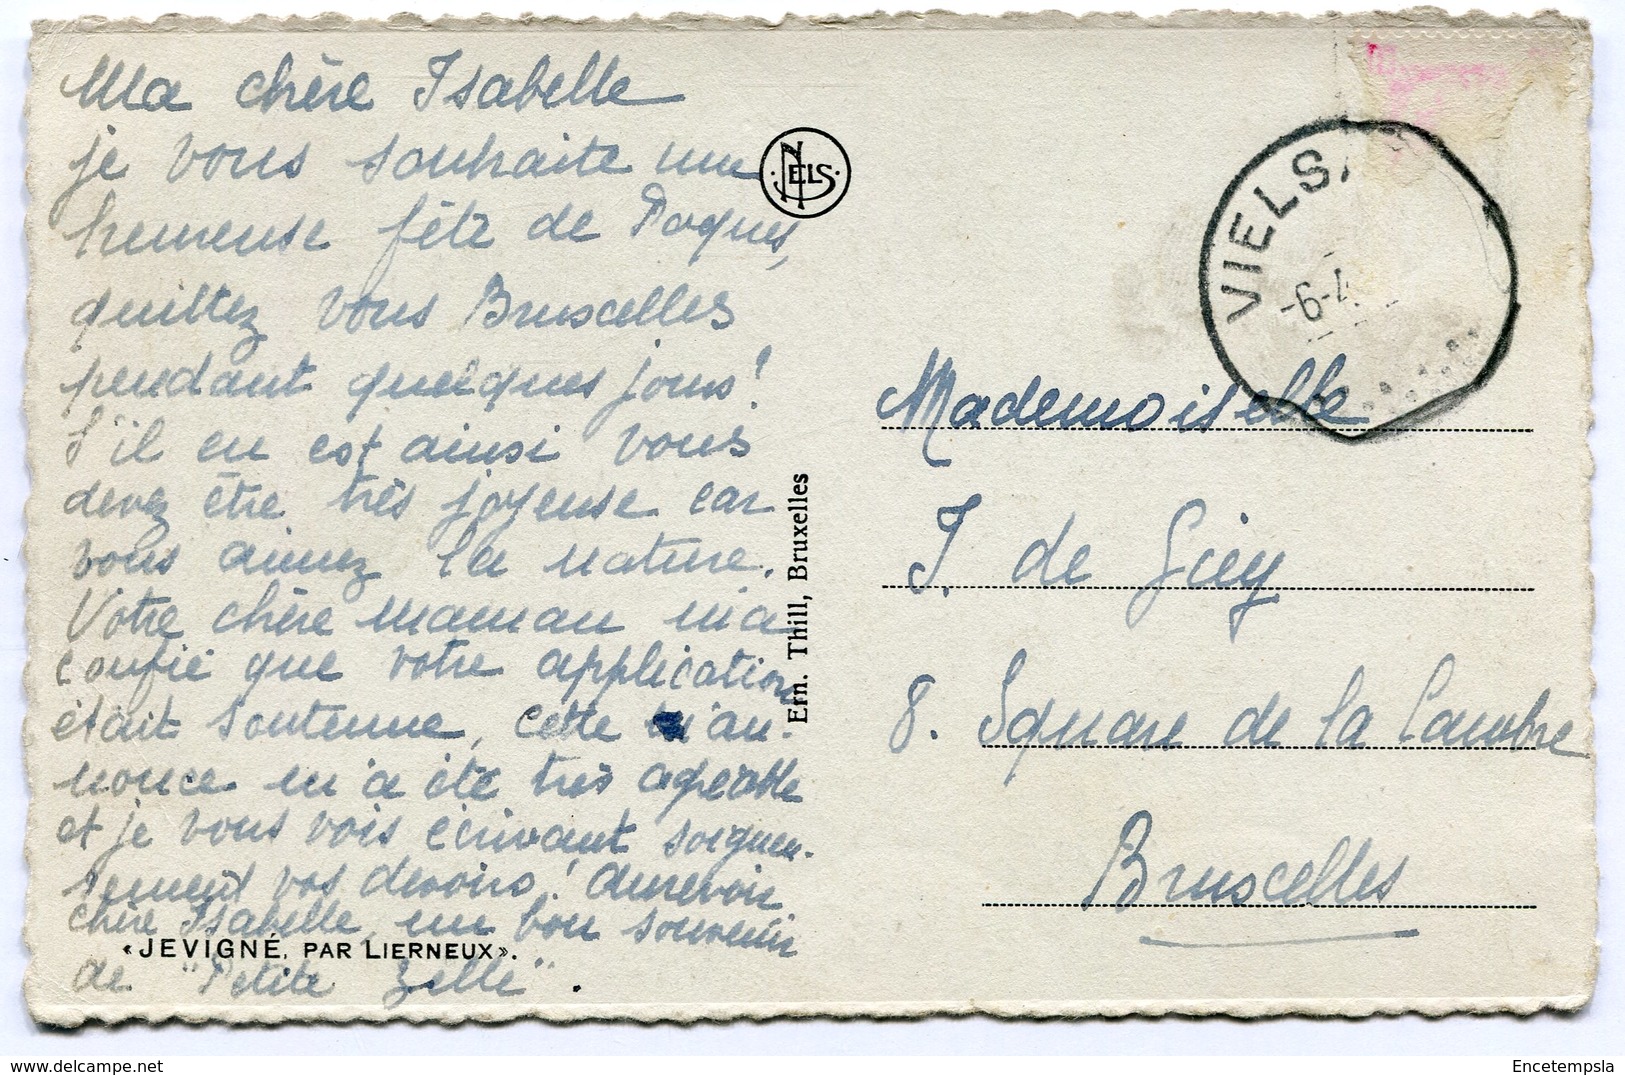 Ma chère Isabelle
je vous souhaite une
heureuse fête de Pâques,
quittez vous Bruxelles
pendant quelques jours!
S'il en est ainsi vous
devez être très joyeuse car
vous aimez la nature.
Votre chère maman m'a
confié que votre application
était soutenue, cette an-
nonce m'a été très agréable
et je vous vois écrivant soigneu-
sement vos devoirs! aurevoir
chère Isabelle, un bon souvenir
de "Petite Zelle".
«JEVIGNÉ, PAR LIERNEUX».
NELS
Em. Thill, Bruxelles
VIELS
-6-4
Mademoiselle
I. de Giey
8. Square de la Cambre
Bruxelles
Encetempsla